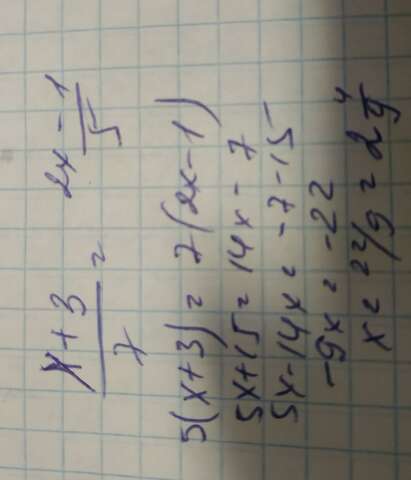 x + 3 / 7 = 2x - 1 / 5
5(x+3) = 7(2x-1)
5x+15 = 14x - 7
5x-14x = -7-15
-9x = -22
x = 22/9 = 2 4/9